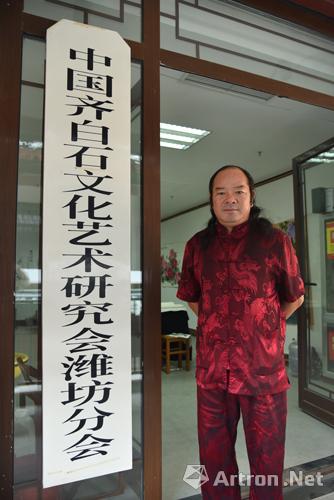 中国齐白石文化艺术研究会潍坊分会
Artron.Net